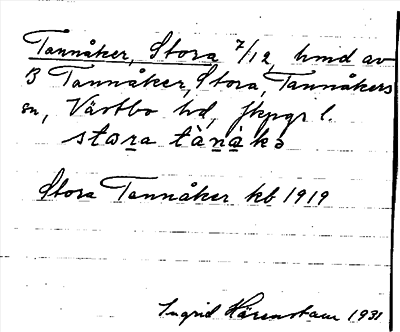 Tannåker, Stora 7/12, hmd av
B Tannåker, Stora, Tannåkers
sn, Västbo hd, Jkpgs l.
stora tànákə
Stora Tannåker kb 1919
Ingrid Härenstam 1931